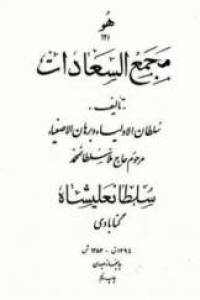 هو
۱۲۱
مجمع السعادات
تألیف
سلطان الاولیاء و برهان الاصفیاء
مرحوم حاج ملا سلطانمحمد
سلطانعلیشاه
گنابادی
۱۳۹۴ ق - ۱۳۵۳ ش